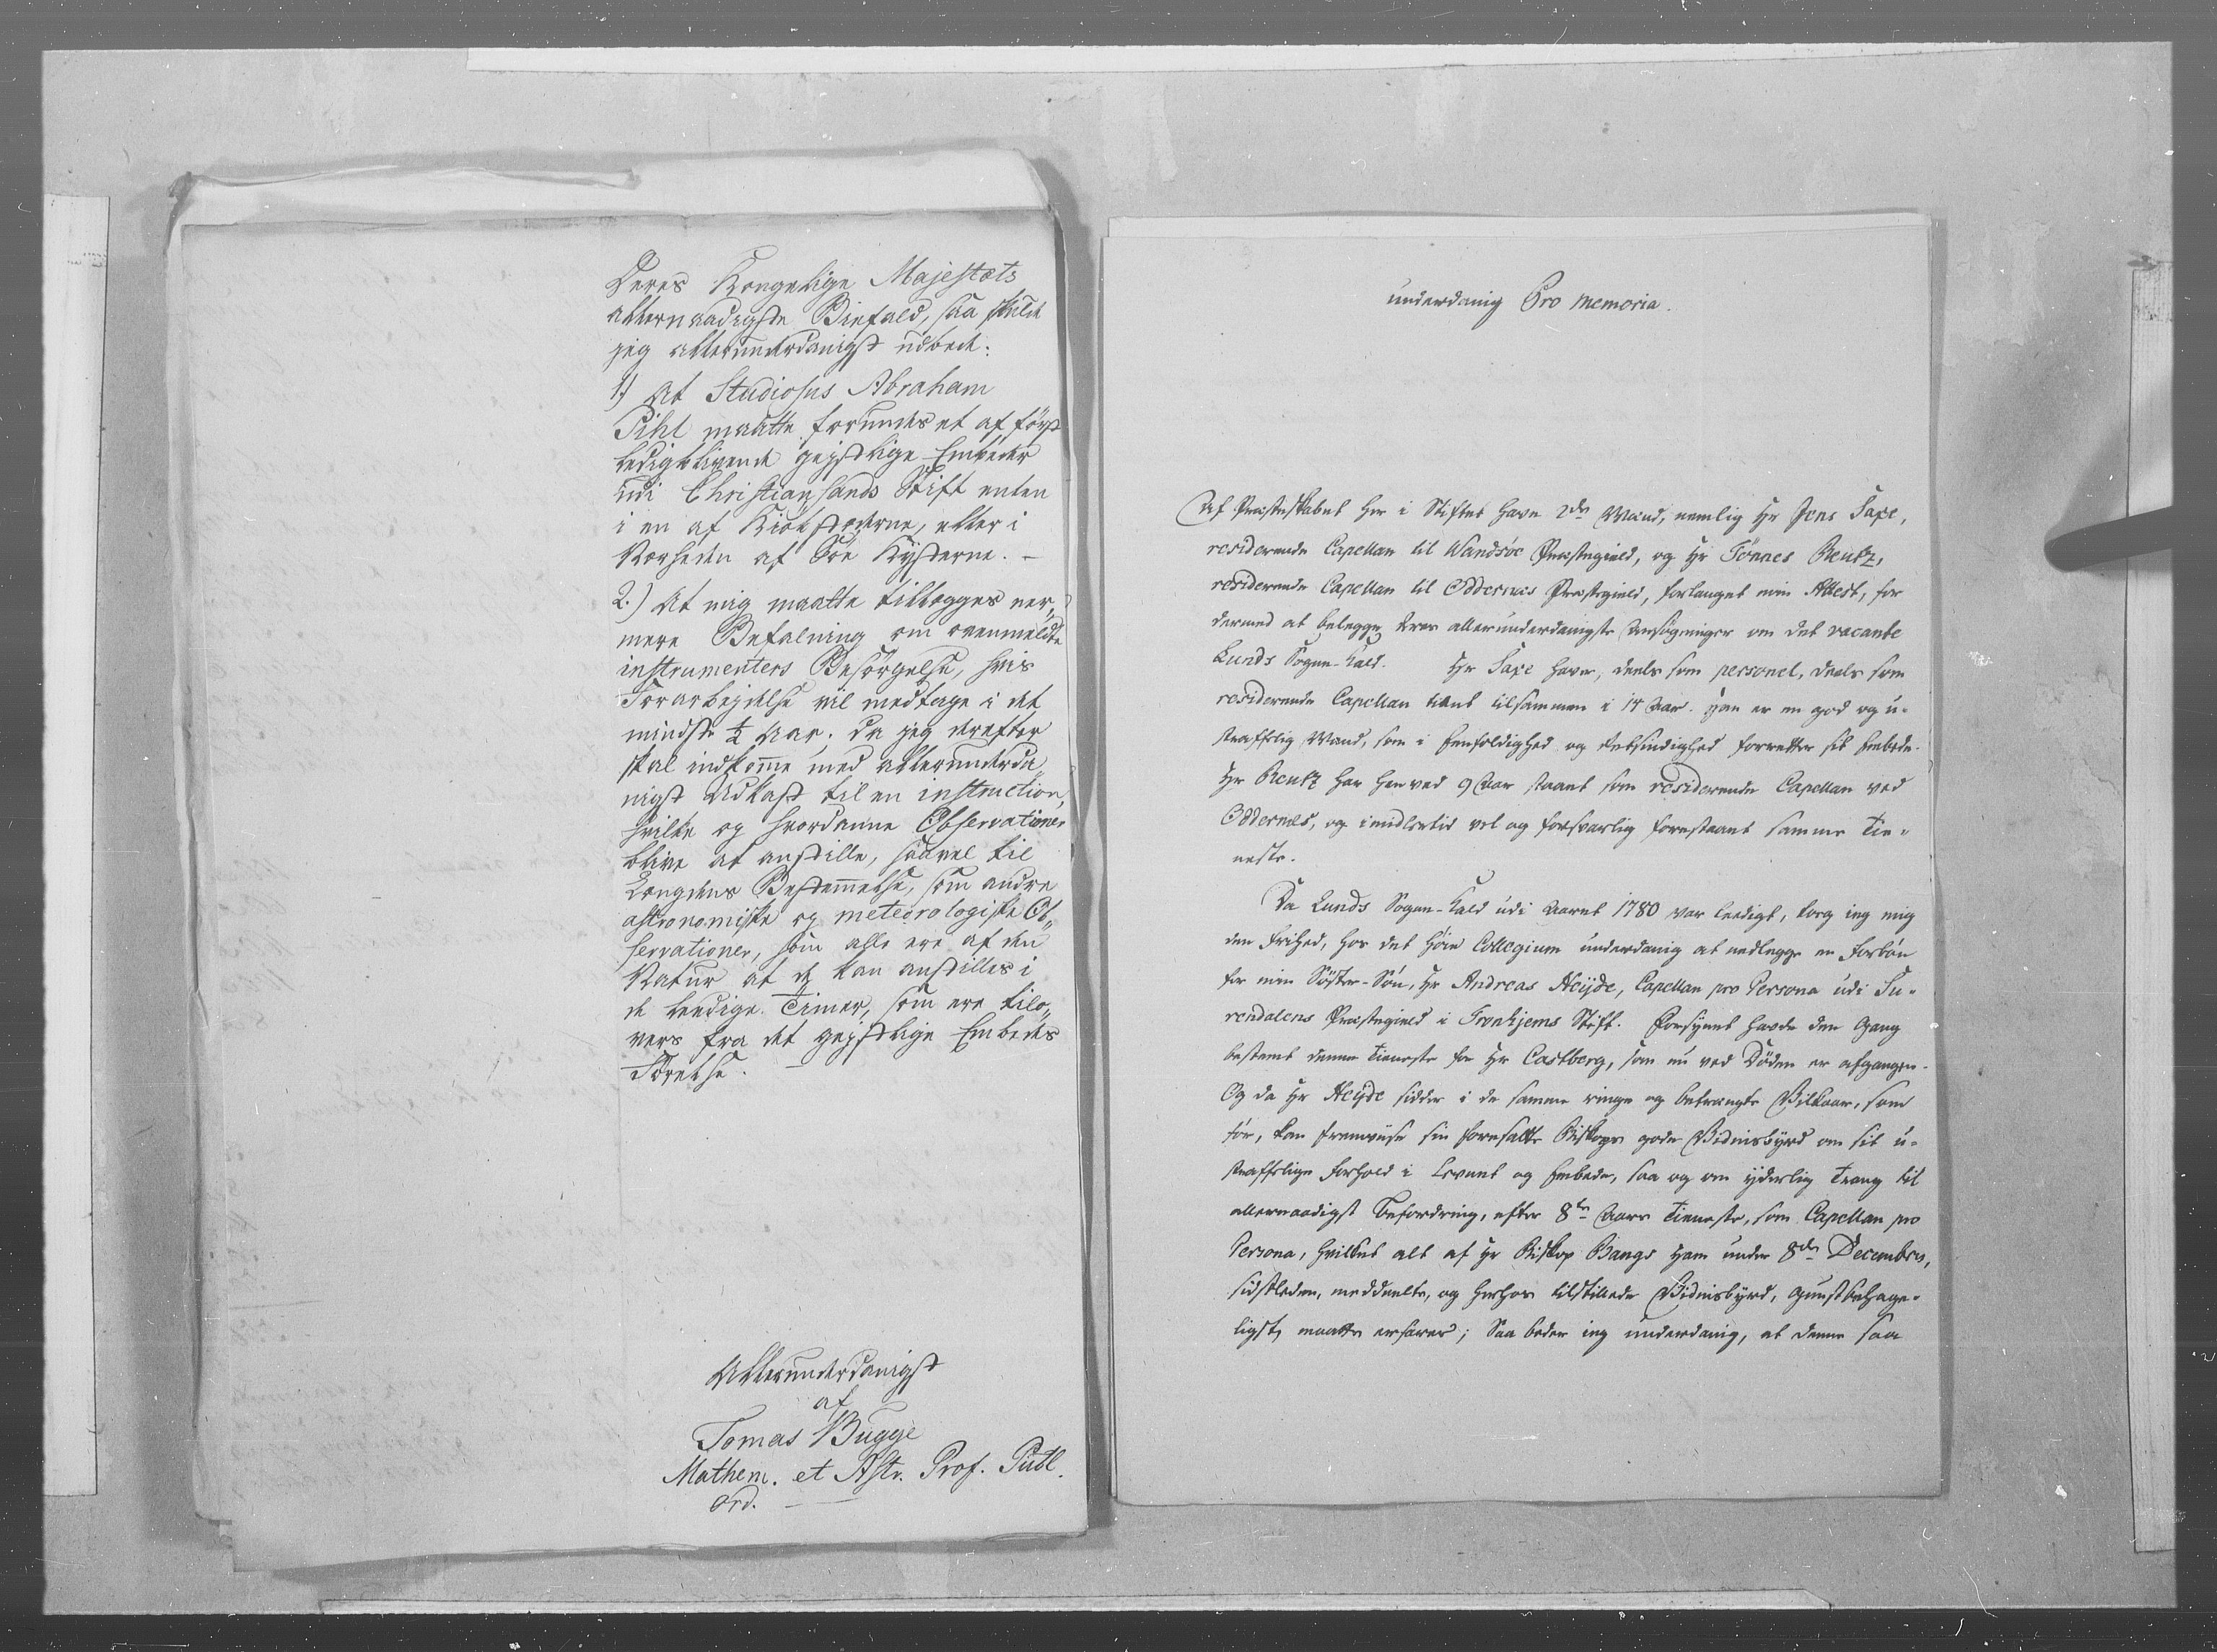 Deres Kongelige Majestæts
allernaadigste Biefald, saa skulde
jeg allerunderdanigst udbede:
1.) At Studiosus Abraham
Pihl maatte forundes et af först
ledigblivende geistlige Embeder
udi Christiansands Stift enten
i en af Kiöbstæderne, eller i
Nærheden af Söe Kysterne. –
2.) At mig maatte tillægges nær„
mere Befalning om ovenmeldte
instrumenters Besörgelse, hvis
Forarbejdelse vil medtage i det
mindste ½ Aar. Da jeg derefter
skal indkomme med allerunderda„
nigst Udkast til en instruction,
hvilke og hvordanne Observationer
blive at anstille, saavel til
Længdens Bestemmelse, som andre
astronomiske og meteorologiske Ob„
servationer, som alle ere af den
Natur at de kan anstilles i
de leedige Timer, som ere tilo„
vers fra det geistlige Embedes
Förelse. –
Allerunderdanigst
af
Tomas Bugge
Mathem. et Astr. Prof. Publ.
Ord. –
underdanig Pro memoria.
Af Præsteskabet her i Stiftet have 2de Mænd, nemlig Hr Jens Saxe,
residerende Capellan til Wandsöe Præstegield, og Hr Tönnes Reutz,
residerende Capellan til Oddernes Præstegield, forlanget min Attest, for
dermed at belegge deres allerunderdanigste Ansögninger om det vacante
Lunds Sogne-Kald. Hr Saxe haver, deels som personel, deels som
residerende Capellan tient tilsammen i 14 Aar. Han er en god og u-
straffelig Mand, som i Eenfoldighed og Retsindighed forretter sit Embede.
Hr Reutz har henved 9 Aar staaet som residerende Capellan ved
Oddernes, og imidlertid vel og forsvarlig forestaaet samme Tie-
neste.
Da Lunds Sogne-Kald udi Aaret 1780 var leedigt, tog ieg mig
den Frihed, hos det Höie Collegium underdanig at nedlegge en Forbön
for min Söster-Sön, Hr Andreas Heyde, Capellan pro Persona udi Su-
rendalens Præstegield i Tronhjems Stift. Forsynet havde den Gang
bestemt denne Tieneste for Hr Castberg, som nu ved Döden er afgangen.
Og da Hr Heyde sidder i de samme ringe og betrængte Vilkaar, som
för, kan fremviise sin foresatte Biskops gode Vidnisbyrd om sit u-
straffelige Forhold i Levnet og Embede, saa og om yderlig Trang til
allernaadigst Befordring, efter 8te Aars Tieneste, som Capellan pro
Persona, hvilket alt af Hr Biskop Bangs ham under 8de Decembris,
sidstleden, meddeelte, og herhos tilstillede Vidnisbyrd, gunstbehage-
ligst, maatte erfares; Saa beder ieg underdanig, at denne saa